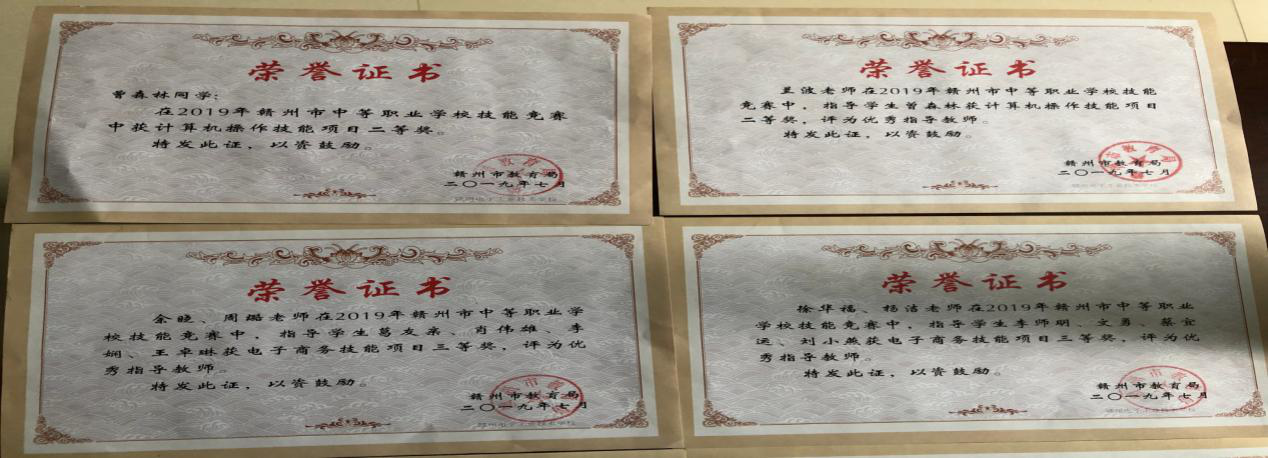 荣誉证书
曾森林同学：
在2019年赣州市中等职业学校技能竞赛
中获计算机操作技能项目二等奖。
特发此证，以资鼓励。
赣州市教育局
二〇一九年七月
荣誉证书
波老师在2019年赣州市中等职业学校技能
竞赛中，指导学生曾森林获计算机操作技能项目
二等奖，评为优秀指导教师。
特发此证，以资鼓励。
赣州市教育局
二〇一九年七月
荣誉证书
余晓、周璐老师在2019年赣州市中等职业学
校技能竞赛中，指导学生葛友亲、肖伟雄、李
娴、王卓琳获电子商务技能项目三等奖，评为优
秀指导教师。
特发此证，以资鼓励。
赣州市教育局
二〇一九年七月
荣誉证书
徐华福、杨洁老师在2019年赣州市中等职业
学校技能竞赛中，指导学生李师明、文勇、蔡宜
运、刘小燕获电子商务技能项目三等奖，评为优
秀指导教师。
特发此证，以资鼓励。
赣州市教育局
二〇一九年七月